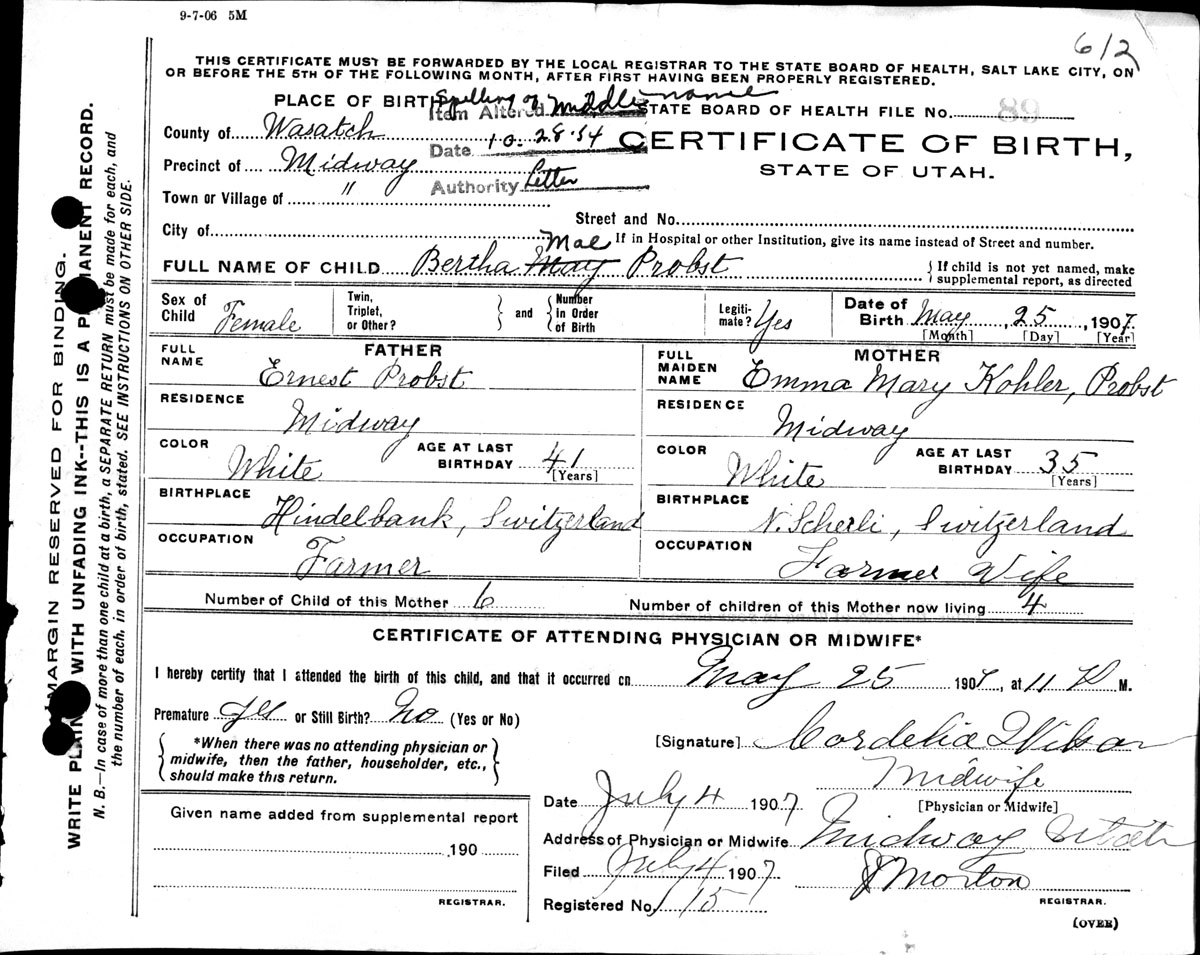 9-7-06 5M
612
THIS CERTIFICATE MUST BE FORWARDED BY THE LOCAL REGISTRAR TO THE STATE BOARD OF HEALTH, SALT LAKE CITY, ON
OR BEFORE THE 5TH OF THE FOLLOWING MONTH, AFTER FIRST HAVING BEEN PROPERLY REGISTERED.
PLACE OF BIRTH
Spelling of middle name
Item Altered
STATE BOARD OF HEALTH FILE No. 89
County of Wasatch
Date 10-28-54
CERTIFICATE OF BIRTH,
STATE OF UTAH.
Precinct of Midway
Authority Letter
Town or Village of "
Street and No.
City of
If in Hospital or other Institution, give its name instead of Street and number.
Mae
FULL NAME OF CHILD Bertha May Probst
{ If child is not yet named, make
supplemental report, as directed
Sex of Child Female
Twin, Triplet, or Other? } and { Number in Order of Birth
Legitimate? Yes
Date of Birth May, 25, 1907.
[Month] [Day] [Year]
FATHER
FULL NAME Ernest Probst
RESIDENCE Midway
COLOR White
AGE AT LAST BIRTHDAY 41 [Years]
BIRTHPLACE Hindelbank, Switzerland
OCCUPATION Farmer
MOTHER
FULL MAIDEN NAME Emma Mary Kohler, Probst
RESIDENCE Midway
COLOR White
AGE AT LAST BIRTHDAY 35 [Years]
BIRTHPLACE N. Scherli, Switzerland
OCCUPATION Farmer Wife
Number of Child of this Mother 6
Number of children of this Mother now living 4
CERTIFICATE OF ATTENDING PHYSICIAN OR MIDWIFE*
I hereby certify that I attended the birth of this child, and that it occurred on May 25 1907, at 11 P M.
Premature yes or Still Birth? No (Yes or No)
{ *When there was no attending physician or
midwife, then the father, householder, etc.,
should make this return. }
[Signature] Cordelia Wilson
Midwife
[Physician or Midwife]
Date July 4 1907
Address of Physician or Midwife Midway Utah
Filed July 4 1907
J Morton
REGISTRAR.
Registered No. 15
(OVER)
Given name added from supplemental report
,190
REGISTRAR.
MARGIN RESERVED FOR BINDING.
WRITE PLAIN WITH UNFADING INK--THIS IS A P MANENT RECORD.
N. B.—In case of more than one child at a birth, a SEPARATE RETURN must be made for each, and
the number of each, in order of birth, stated. SEE INSTRUCTIONS ON OTHER SIDE.